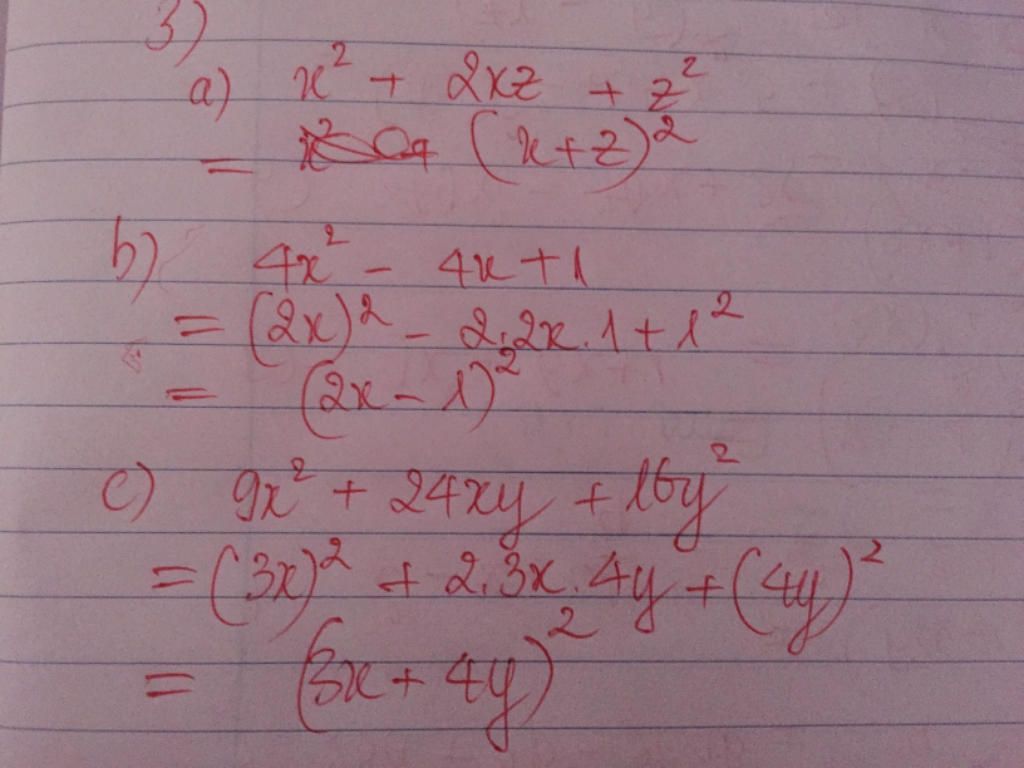 3)
a) x² + 2xz + z²
= (x+z)²
b) 4x² - 4x + 1
= (2x)² - 2.2x.1 + 1²
= (2x - 1)²
c) 9x² + 24xy + 16y²
= (3x)² + 2.3x.4y + (4y)²
= (3x + 4y)²